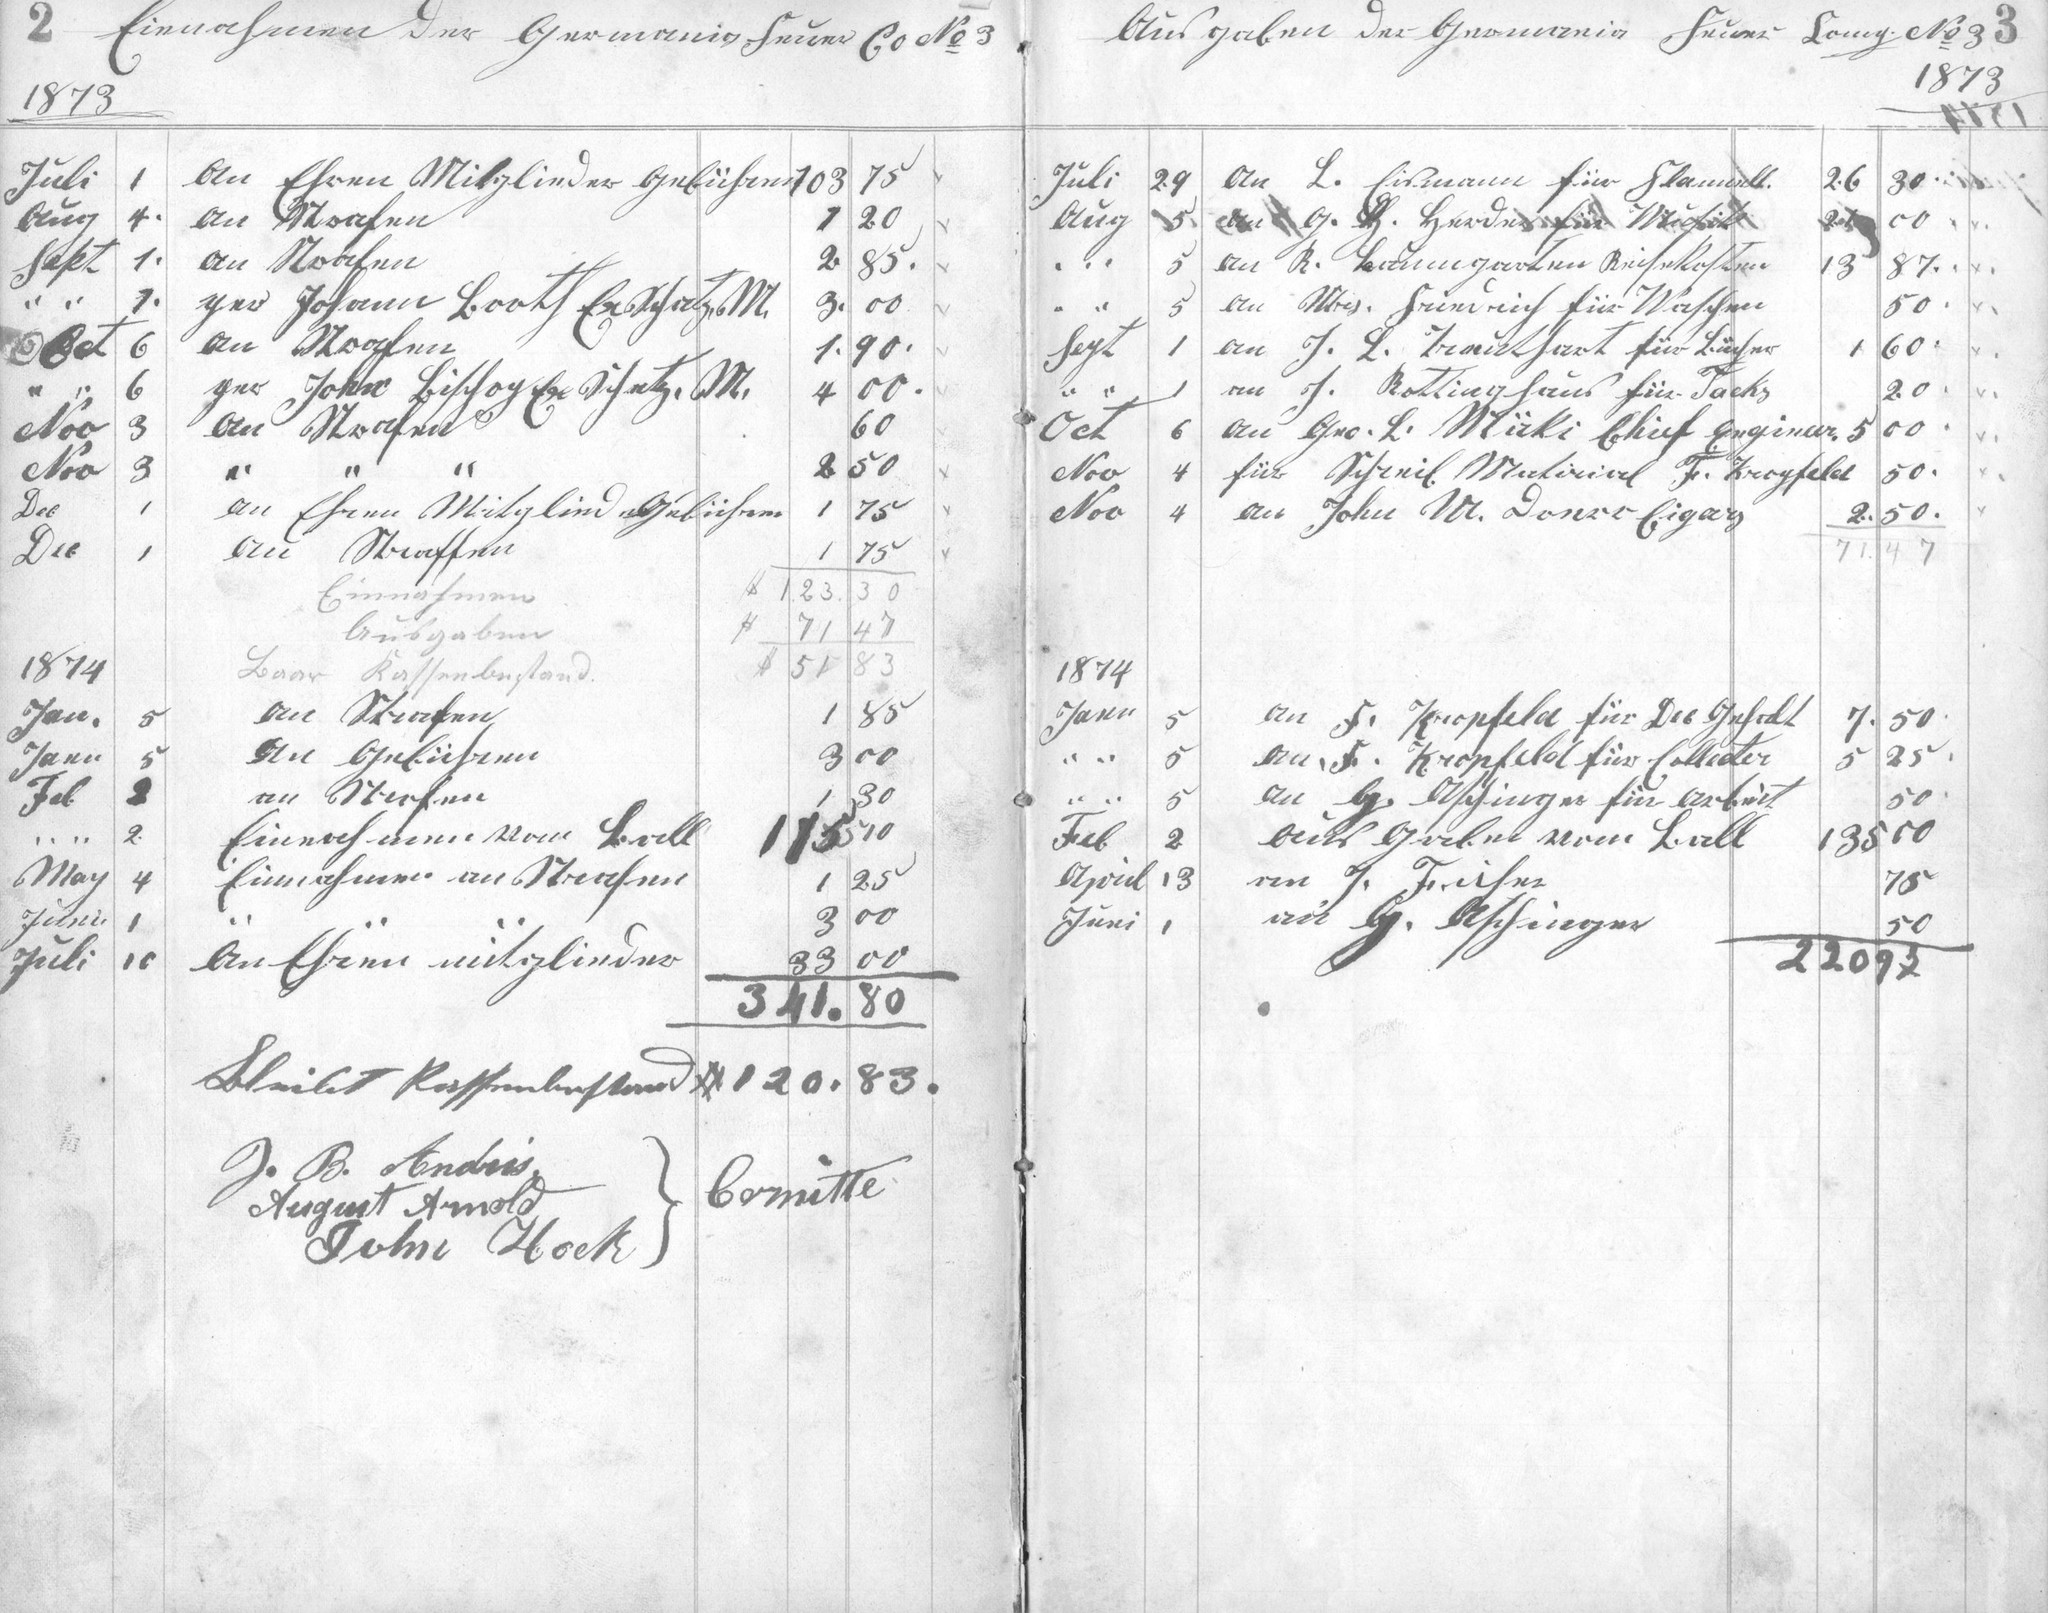 2 Einnahmen der Germania Feuer Co No 3
1873
Juli 1 An Ehren Mitglieder Gebühren 103 75
Aug 4. an Strafen 1 20
Sept 1. an Strafen 2 85.
" " 1. per Johann Booth Ex Schatz. M. 3. 00
Oct 6 an Strafen 1. 90.
" " 6 per John Bischop Ex Schatz. M. 4 00.
Nov 3 an Strafen 60
Nov 3 " " " 2 50
Dec 1 an Ehren Mitglied Gebühren 1 75
Dec 1 an Straffen 1 75
Einnahmen $ 123. 30
Ausgaben $ 71 47
1874 Baar Kassenbestand. $ 51 83
Jan. 5 an Strafen 1 85
Janu 5 an Gebühren 3 00
Feb 2 an Strafen 1 30
" " 2 Einnahmen vom Ball 175 10
May 4 Einnahmen an Strafen 1 25
Juni 1 " " 3 00
Juli 10 An Ehren mitglieder 33 00
341. 80
Bleibt Kassenbestand $ 120. 83.
J. B. Andris
August Arnold
John Hock
Comitte
Ausgaben der Germania Feuer Comp. No 3 3
1873
Juli 29 An L. Eismann für Flannell. 26 30.
Aug 5 an G. H. Herder für Musik 21 00
" " 5 an R. Baumgarten Reisekosten 13 87.
" " 5 an Mrs. Friedrich für Waschen 50.
Sept 1 an J. L. Trauthart für Bücher 1 60.
" " 1 an J. Rottinghaus für Tacks 20
Oct 6 an Geo. L. Mücki Chief Engineer. 5 00.
Nov 4 für Schreib Material F. Kropfeld 50.
Nov 4 an John M. Doner Cigars 2. 50.
71. 47
1874
Janu 5 an F. Kropfeld für Dec Gehalt 7. 50
" " 5 an F. Kropfeld für Collecter 5 25.
" " 5 an G. Aschinger für Arbeit 50.
Feb 2 Aus Gaben vom Ball 135 00
April 13 an J. Feicher 75
Juni 1 an G. Aschinger 50
220 97